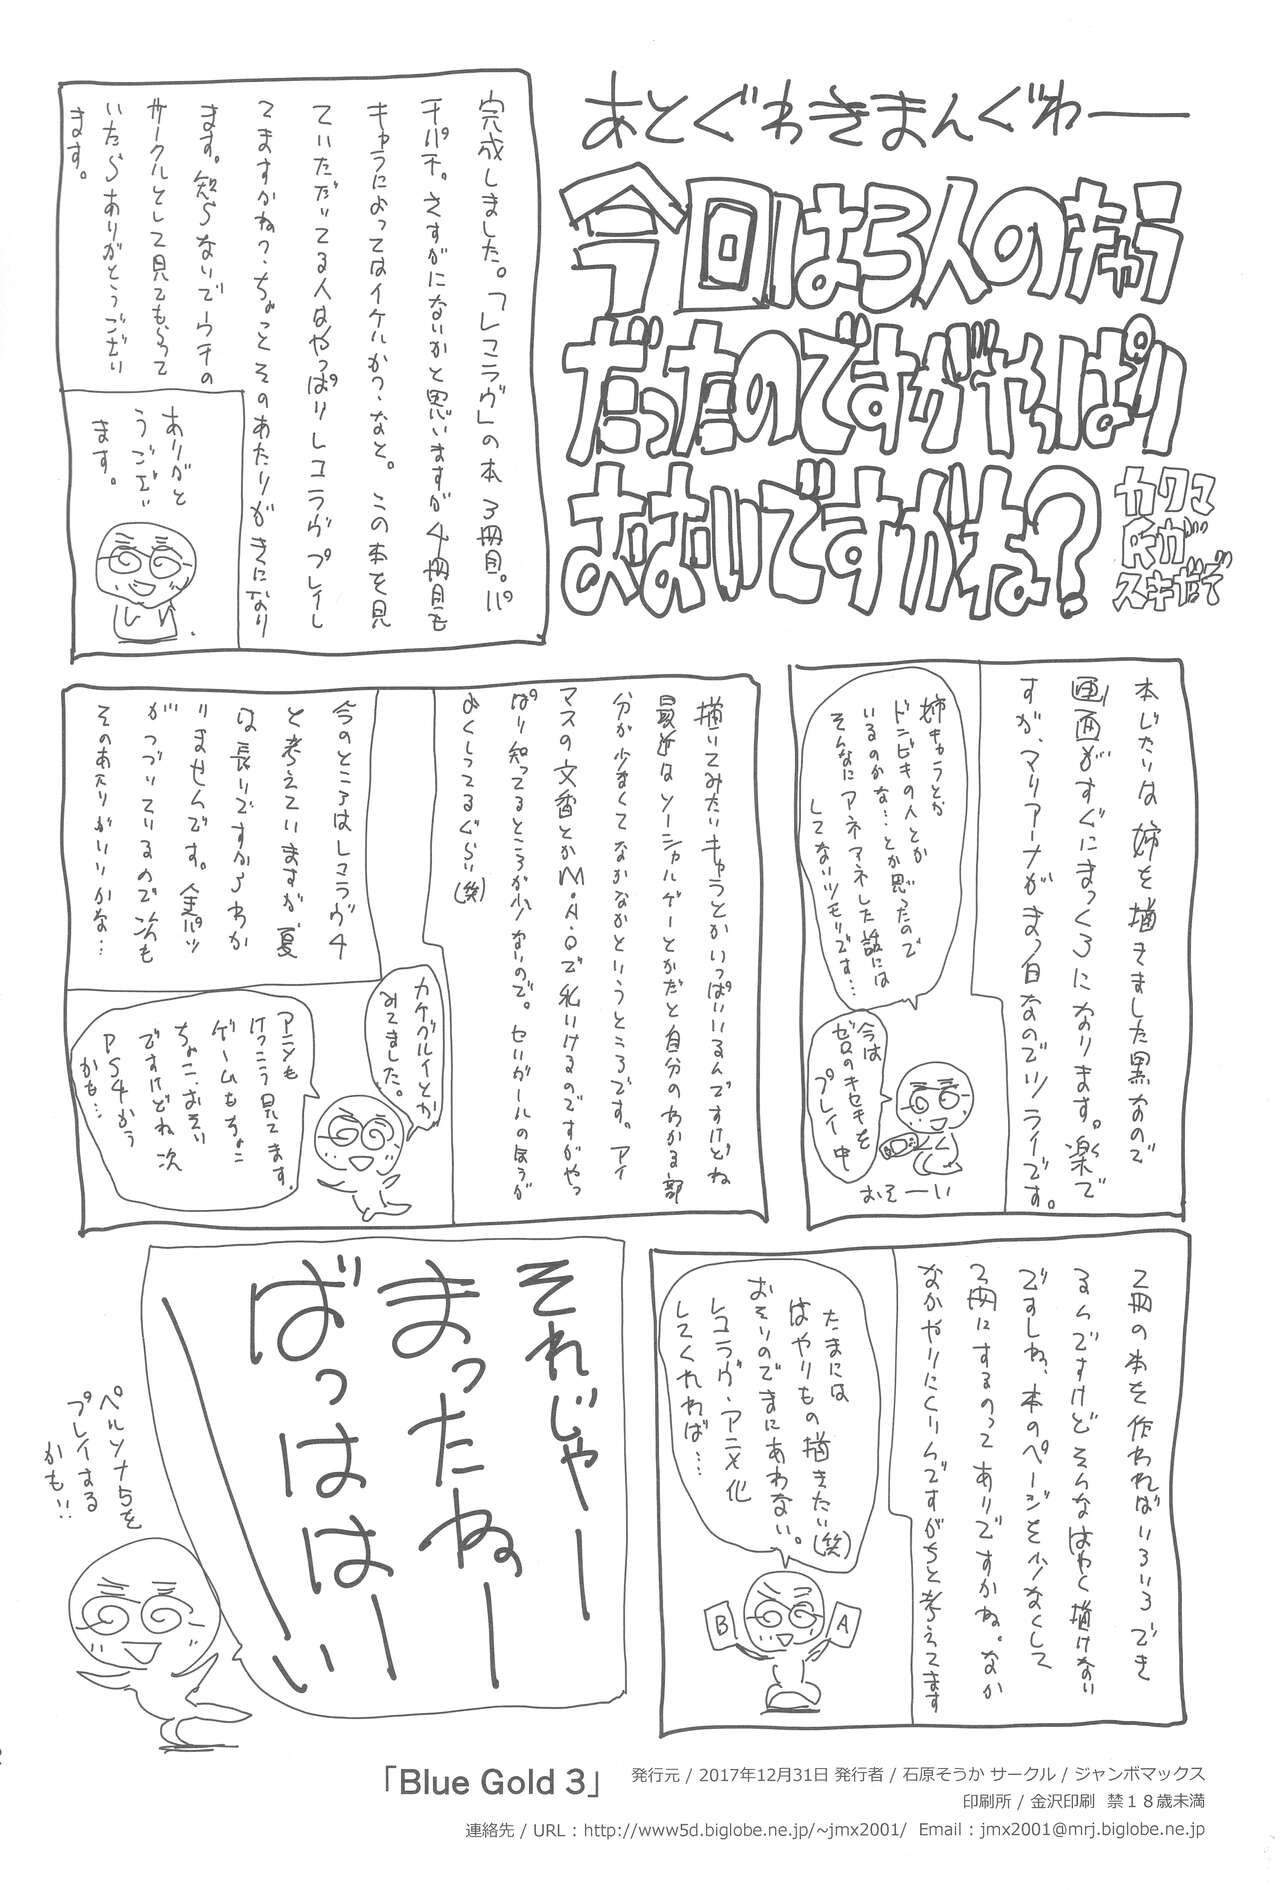 あとぐわきまんぐわー
今回は3人のキャラ
だったのですがやっぱり
おおいですかね?
カワマ
氏が
スキだで
完成しました。「レコラヴ」の本3冊目。パ
チパチ。さすがにないかと思いますが4冊目も
キャラによってはイケルか?なと。この本を見
ていただいてる人はやっぱりレコラヴプレイし
てますかね?ちょっとそのあたりがきになり
ます。知らないでウチの
サークルとして見てもらって
いたらありがとうござい
ます。
ありがと
うござい
ます。
本じたいは姉を描きました黒なので
画面がすぐにまっくろになります。楽で
すが、マリアーナがまっ白なのでツライです。
姉キャラとか
ドンビキの人とか
いるのかな…とか思ったので
そんなにアネアネした話には
してないツモリです…
今は
ゼロのキセキを
プレイ中
おそーい
描いてみたいキャラとかいっぱいいるんですけどね
最近はソーシャルゲーとかだと自分のわかる部
分が少なくてなかなかというところです。アイ
マスの文香とかM・A・Oで私いけるのですがやっ
ぱり知ってるところが少ないので。セハガールのほうが
よくしってるぐらい(笑)
今のところはレコラヴ4
と考えていますが、夏
は長いですからわか
りませんです。金パツ
がつづいているので次も
そのあたりがいいかな…
カケグルイとか
みてました。
アニメも
けっこう見てます。
ゲームもちょこ
ちょこ。おそい
ですけどね次
PS4かう
かも…
2冊の本を作ればいろいろでき
るんですけどそんなはやく描けない
ですしね、本のページを少なくして
2冊にするのってありですかね。なか
なかやりにくいんですがちと考えてます
たまには
はやりもの描きたい(笑)
おそいのでまにあわない。
レコラヴ・アニメ化
してくれれば…
B
A
それじゃー
まったねー
ばっははーい
ペルソナ5を
プレイする
かも!!
「Blue Gold 3」
発行元 / 2017年12月31日 発行者 / 石原そうか サークル / ジャンボマックス
印刷所 / 金沢印刷 禁１８歳未満
連絡先 / URL : http://www5d.biglobe.ne.jp/~jmx2001/ Email : jmx2001@mrj.biglobe.ne.jp